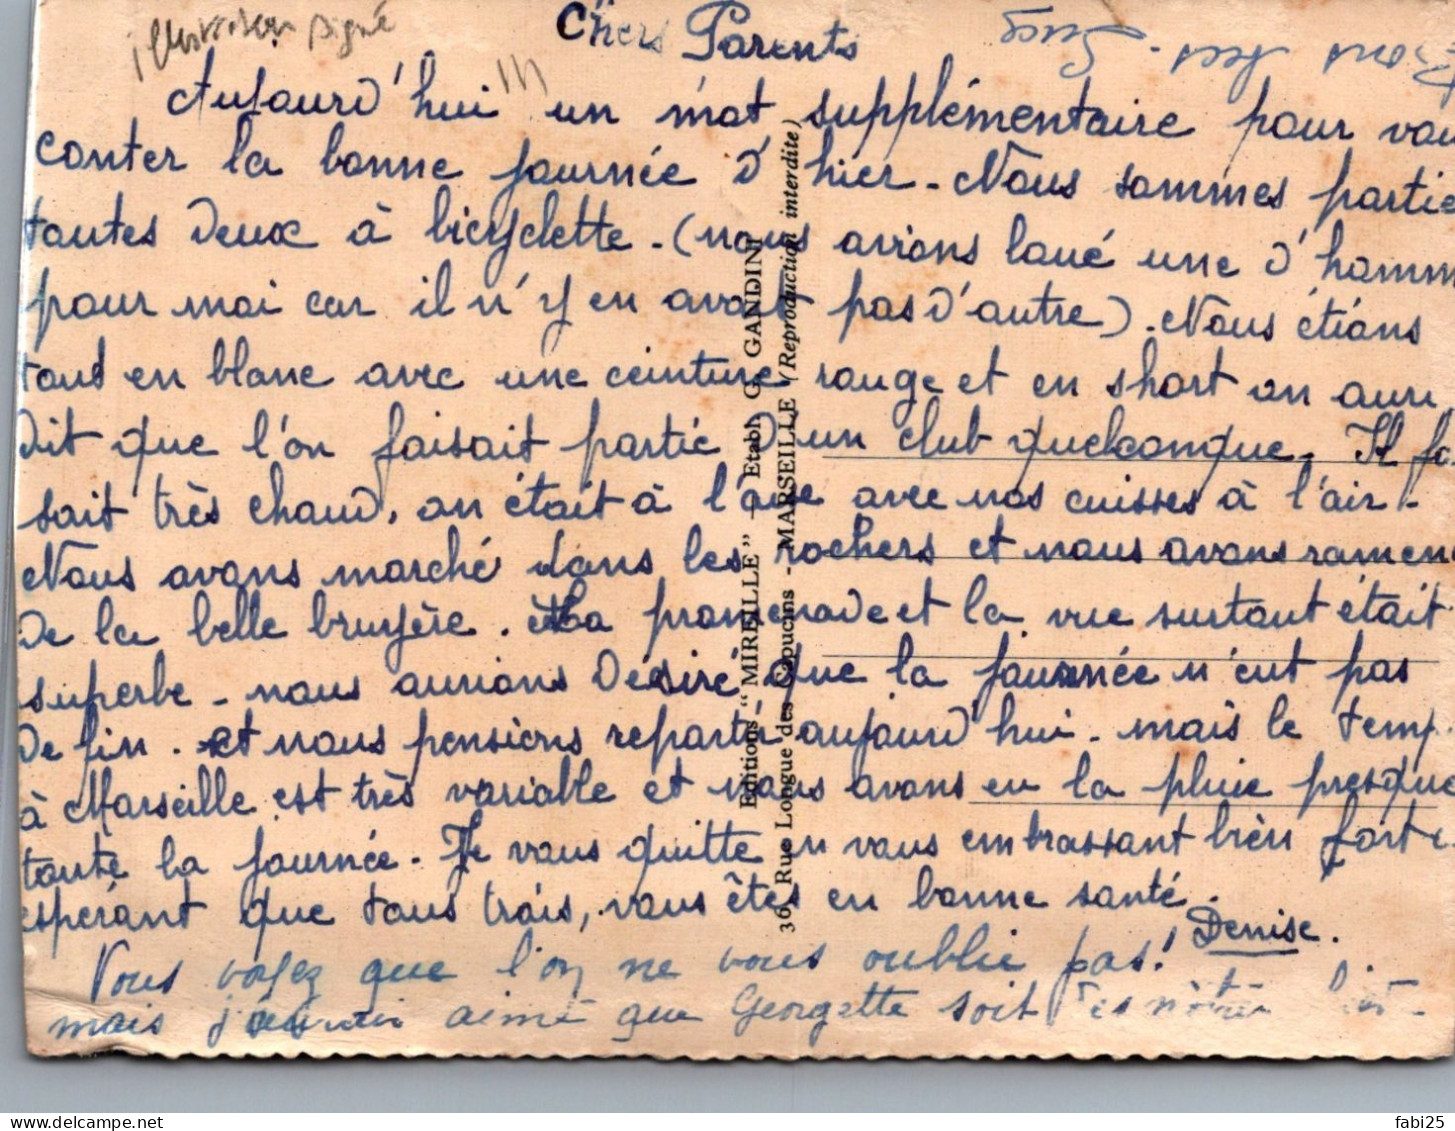 illustration signé
Chers Parents
Aujourd'hui un mot supplémentaire pour vou
conter la bonne journée d'hier. Nous sommes partie
toutes deux à bicyclette. (nous avions loué une d'homm
pour moi car il n'y en avait pas d'autre). Nous étions
tout en blanc avec une ceinture rouge et en short on aur
dit que l'on faisait partie d'un club quelconque. Il fa
sait très chaud, on était à l'aise avec nos cuisses à l'air.
Nous avons marché dans les rochers et nous avons ramen
de la belle bruyère. La promenade et la vue surtout était
superbe. nous aurions désiré que la journée n'eut pas
de fin. et nous pensions repartir aujourd'hui. mais le temp
à Marseille est très variable et nous avons eu la pluie presque
toute la journée. Je vous quitte en vous embrassant bien fort e
espérant que tous trois, vous êtes en bonne santé.
Denise.
Vous voyez que l'on ne vous oublie pas!
mais j'aurais aimé que Georgette soit des nôtres
Editions "MIREILLE" - Etabl. G. GANDINI
36 Rue Longue des Capucins - MARSEILLE (Reproduction interdite)
fabi25